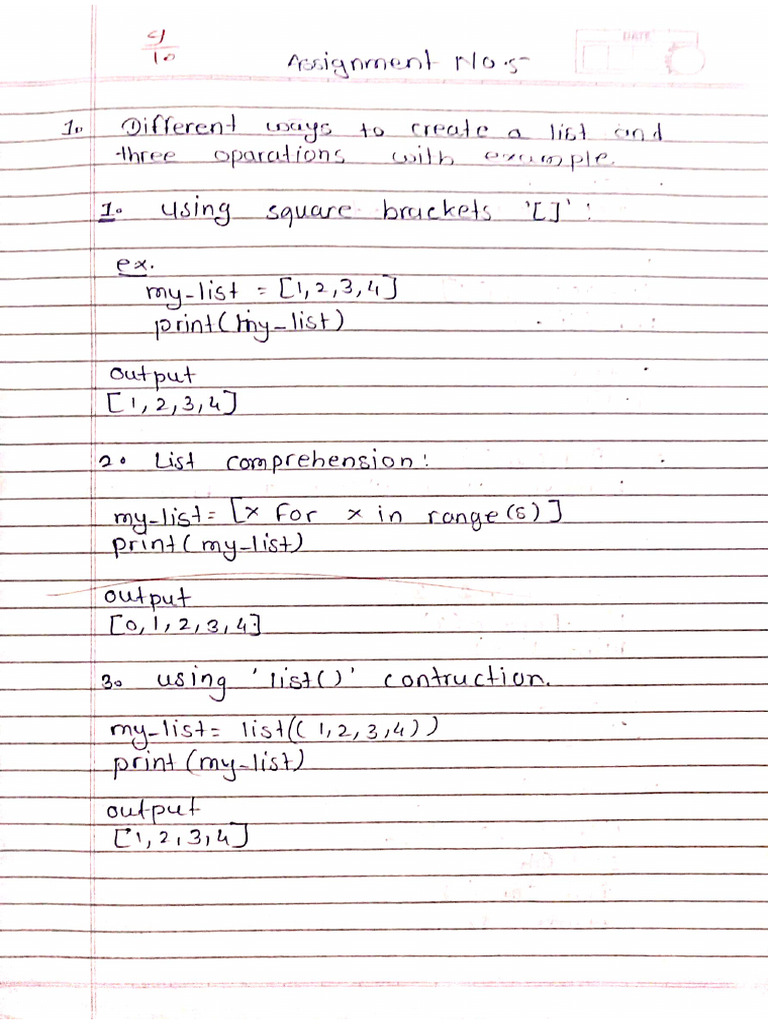 9/10
Assignment No.5
DATE
1. Different ways to create a list and
three oparations with example.
1. Using square brackets '[]':
ex.
my-list = [1,2,3,4]
print(my-list)
output
[1,2,3,4]
2. List comprehension:
my-list= [x for x in range(5)]
print(my-list)
output
[0,1,2,3,4]
3. using 'list()' contruction.
my-list= list((1,2,3,4))
print(my-list)
output
[1,2,3,4]